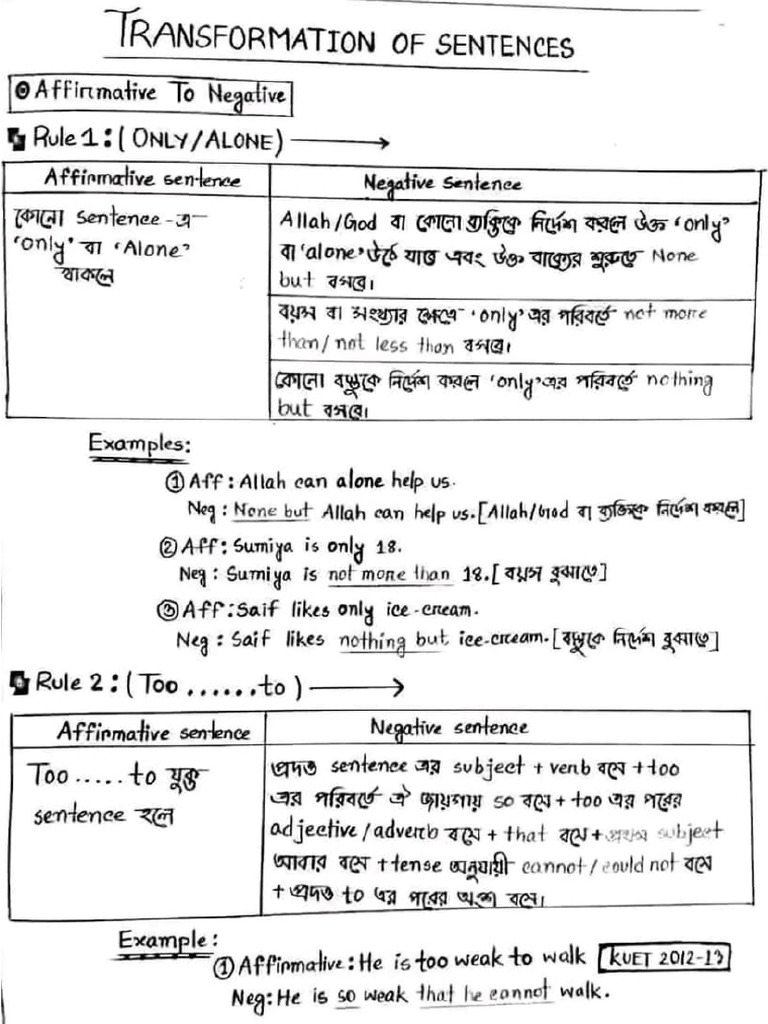 TRANSFORMATION OF SENTENCES
Affirmative To Negative
Rule 1: (ONLY/ALONE)
Affirmative sentence
Negative Sentence
কোনো sentence-এ
'only' বা 'Alone'
থাকলে
Allah/God বা কোনো ব্যক্তিকে নির্দেশ করলে উক্ত 'only'
বা 'alone' উঠে যাবে এবং উক্ত বাক্যের শুরুতে None
but বসবে।
বয়স বা সংখ্যার ক্ষেত্রে 'only' এর পরিবর্তে not more
than/ not less than বসবে।
কোনো বস্তুকে নির্দেশ করলে 'only' এর পরিবর্তে nothing
but বসবে।
Examples:
① Aff: Allah can alone help us.
Neg: None but Allah can help us. [Allah/God বা ব্যক্তিকে নির্দেশ করলে]
② Aff: Sumiya is only 18.
Neg: Sumiya is not more than 18. [বয়স বুঝাতে]
③ Aff: Saif likes only ice-cream.
Neg: Saif likes nothing but ice-cream. [বস্তুকে নির্দেশ বুঝাতে]
Rule 2: (Too ......to)
Affirmative sentence
Negative sentence
Too.....to যুক্ত
sentence হলে
প্রদত্ত sentence এর subject + verb বসে + too
এর পরিবর্তে ঐ জায়গায় so বসে + too এর পরের
adjective/adverb বসে + that বসে + প্রথম subject
আবার বসে + tense অনুযায়ী cannot/could not বসে
+ প্রদত্ত to এর পরের অংশ বসে।
Example:
① Affirmative: He is too weak to walk KUET 2012-13
Neg: He is so weak that he cannot walk.